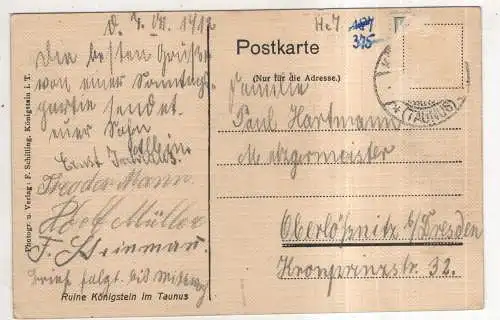 d. 7. VI. 1912
Die besten Grüße
von einer Sonntags-
partie sendet
euer Sohn
Ernst
Theodor Mann
Adolf Müller
F. Steinmau
Brief folgt bis Mittwoch
Ruine Königstein im Taunus
Photogr. u. Verlag: F. Schilling, Königstein i. T.
H.7 187
345
Postkarte
(Nur für die Adresse.)
Familie
Paul Hartmann
Metzgermeister
Oberlößnitz b/Dresden
Kronprinzstr. 32.
(TAUNUS)